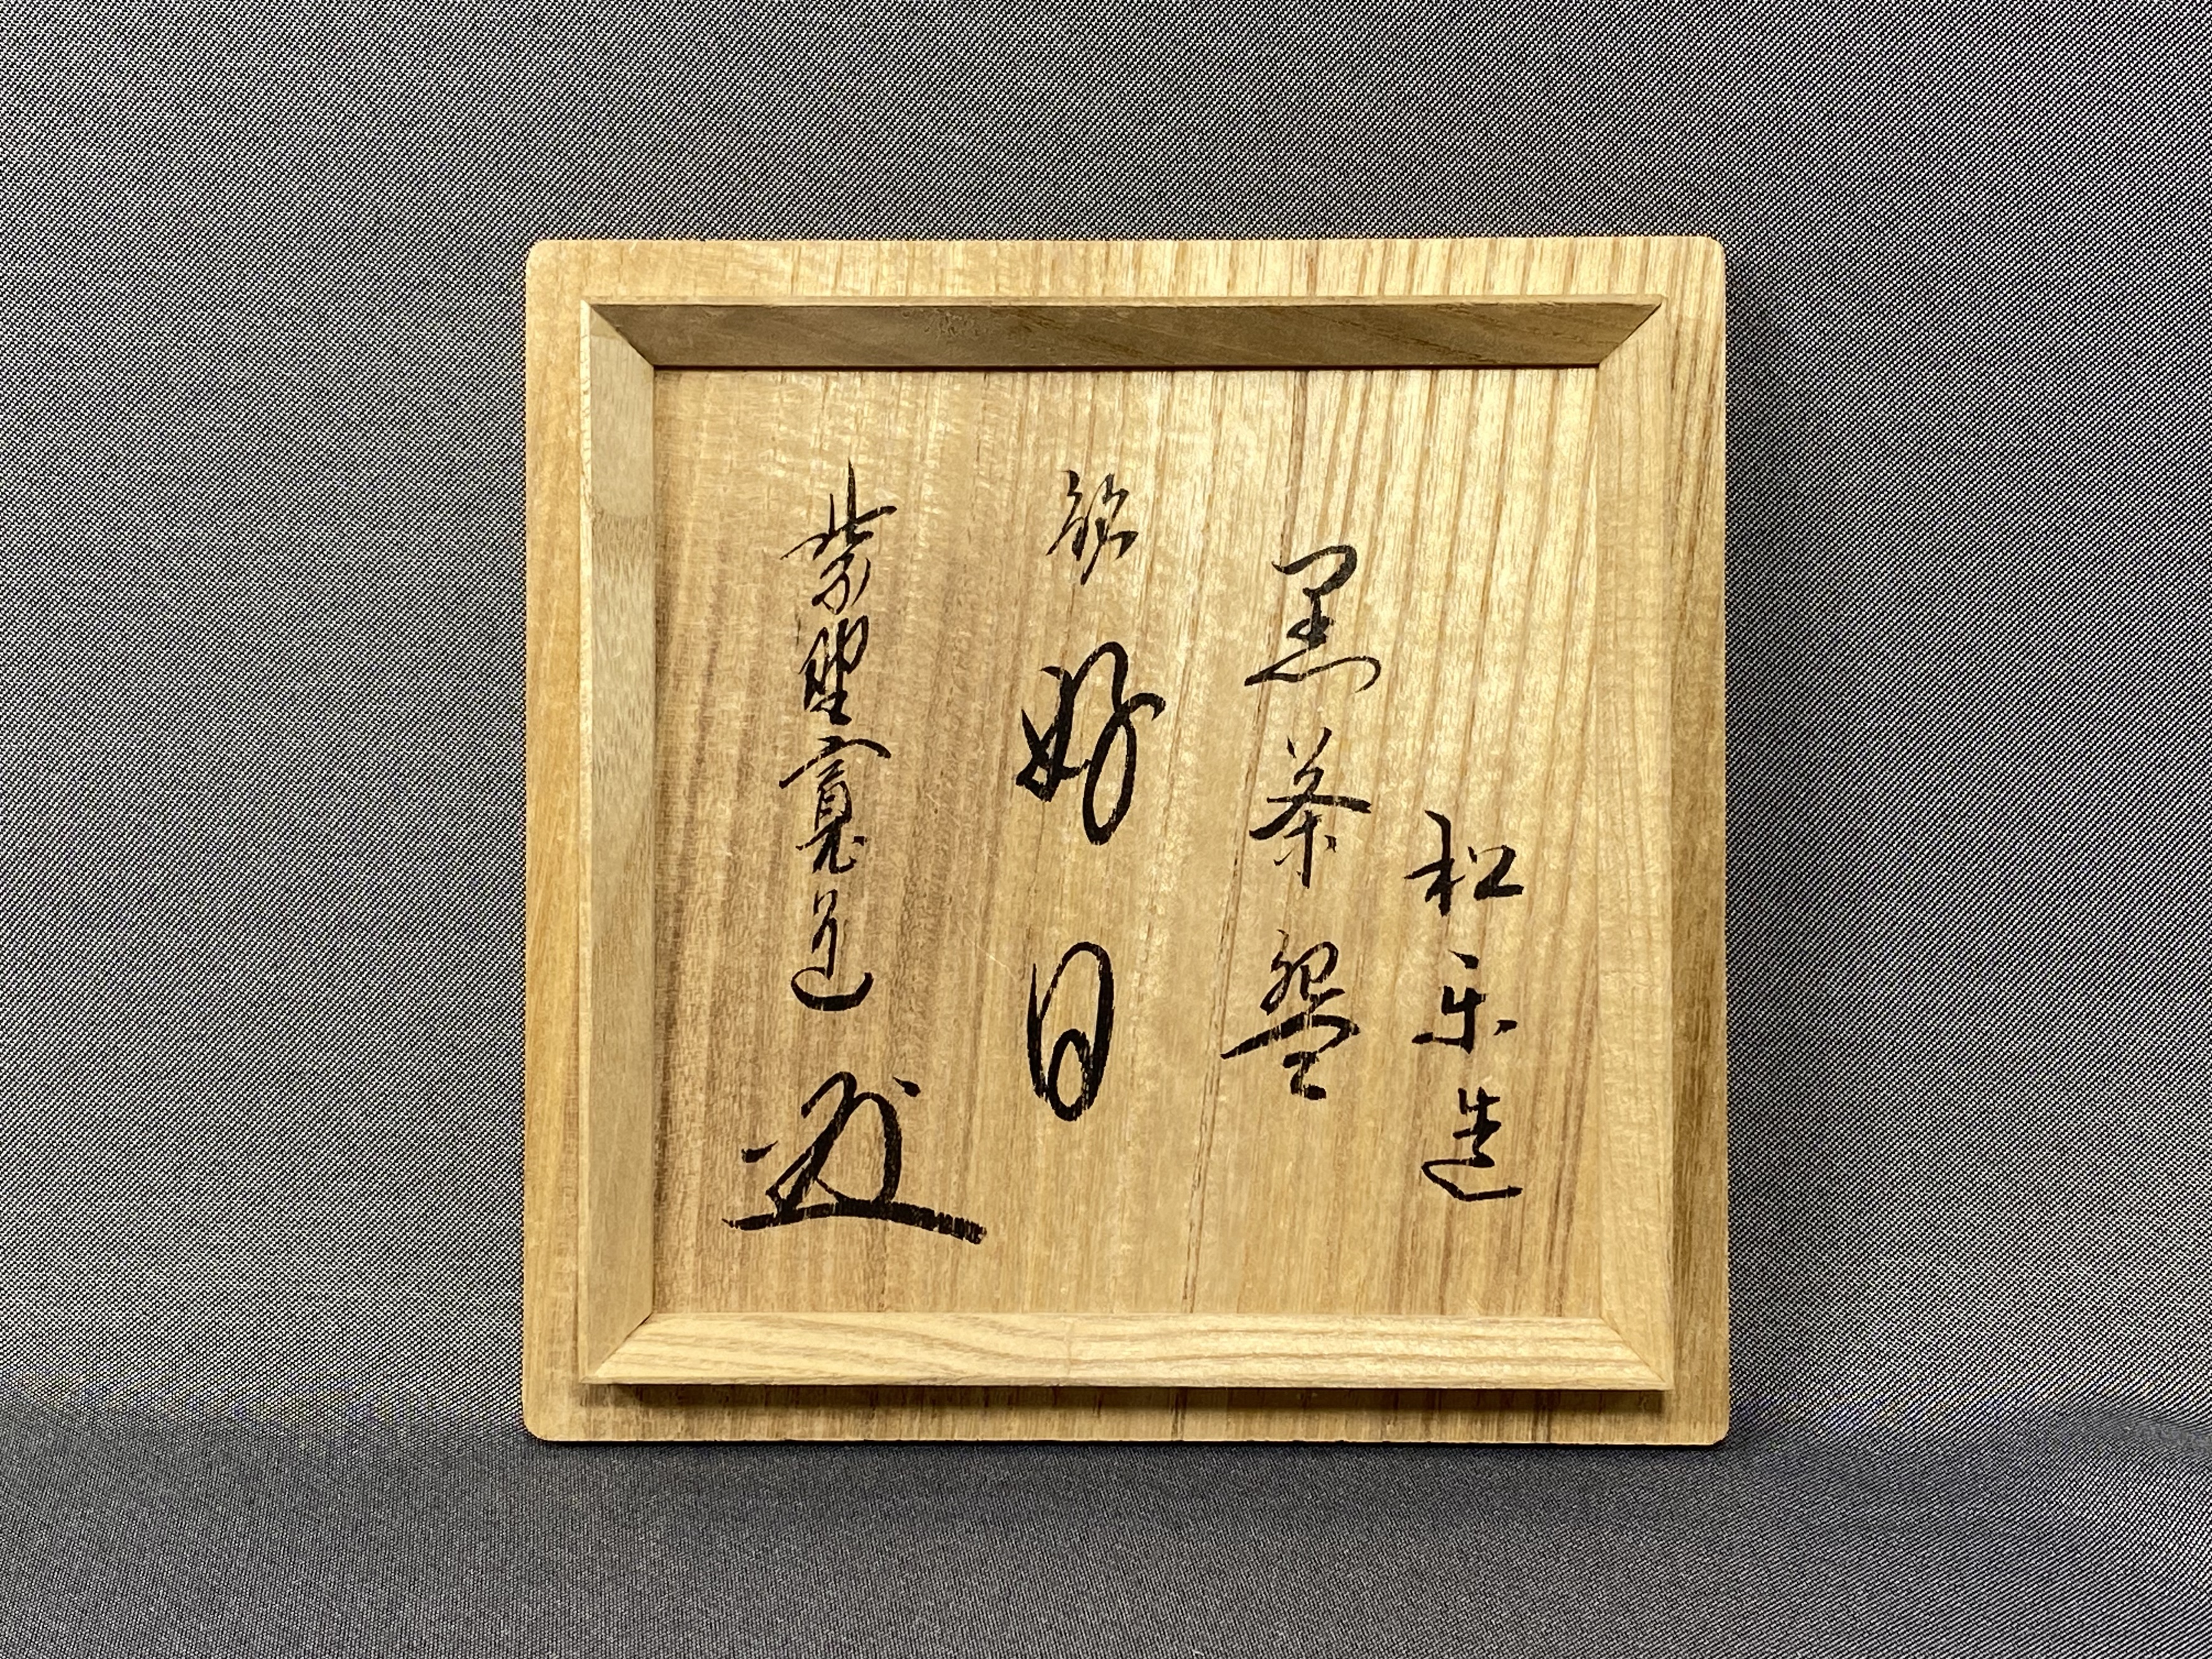 松楽造
黒茶盌
銘 好日
紫野寛道